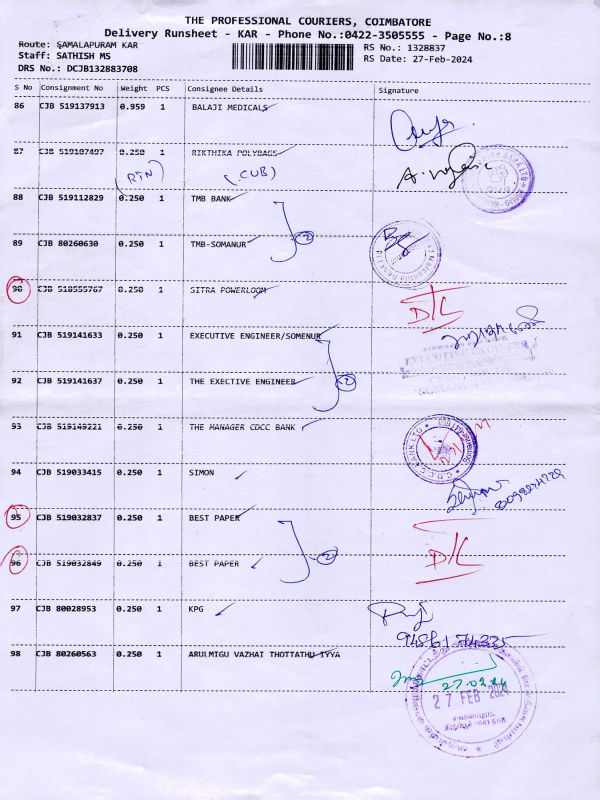 THE PROFESSIONAL COURIERS, COIMBATORE
Delivery Runsheet - KAR - Phone No.:0422-3505555 - Page No.:8
Route: SAMALAPURAM KAR
RS No.: 1328837
Staff: SATHISH MS
RS Date: 27-Feb-2024
DRS No.: DCJB132883708
S No Consignment No Weight PCS Consignee Details Signature
86 CJB 519137913 0.959 1 BALAJI MEDICALS
87 CJB 519107497 0.250 1 RIKTHIKA POLYBAGS
(RTN) (CUB)
88 CJB 519112829 0.250 1 TMB BANK
2
89 CJB 80260630 0.250 1 TMB-SOMANUR
90 CJB 518555767 0.250 1 SITRA POWERLOOM
D/L
91 CJB 519141633 0.250 1 EXECUTIVE ENGINEER/SOMENUR
92 CJB 519141637 0.250 1 THE EXECTIVE ENGINEER 2
93 CJB 519149221 0.250 1 THE MANAGER CDCC BANK
94 CJB 519033415 0.250 1 SIMON
95 CJB 519032837 0.250 1 BEST PAPER
2
D/L
96 CJB 519032849 0.250 1 BEST PAPER
97 CJB 80028953 0.250 1 KPG
9486174335
98 CJB 80260563 0.250 1 ARULMIGU VAZHAI THOTTATHU IYYA
27.02.24
27 FEB 2024